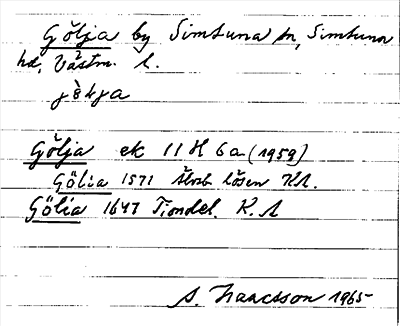 Gölja by Simtuna sn, Simtuna
hd, Västm. l.
Gölja ek 11 H 6a (1959)
Gölia 1571 Älvsb lösen KA.
Gölia 1647 Tiondel. K.A
A. Isaacsson 1965